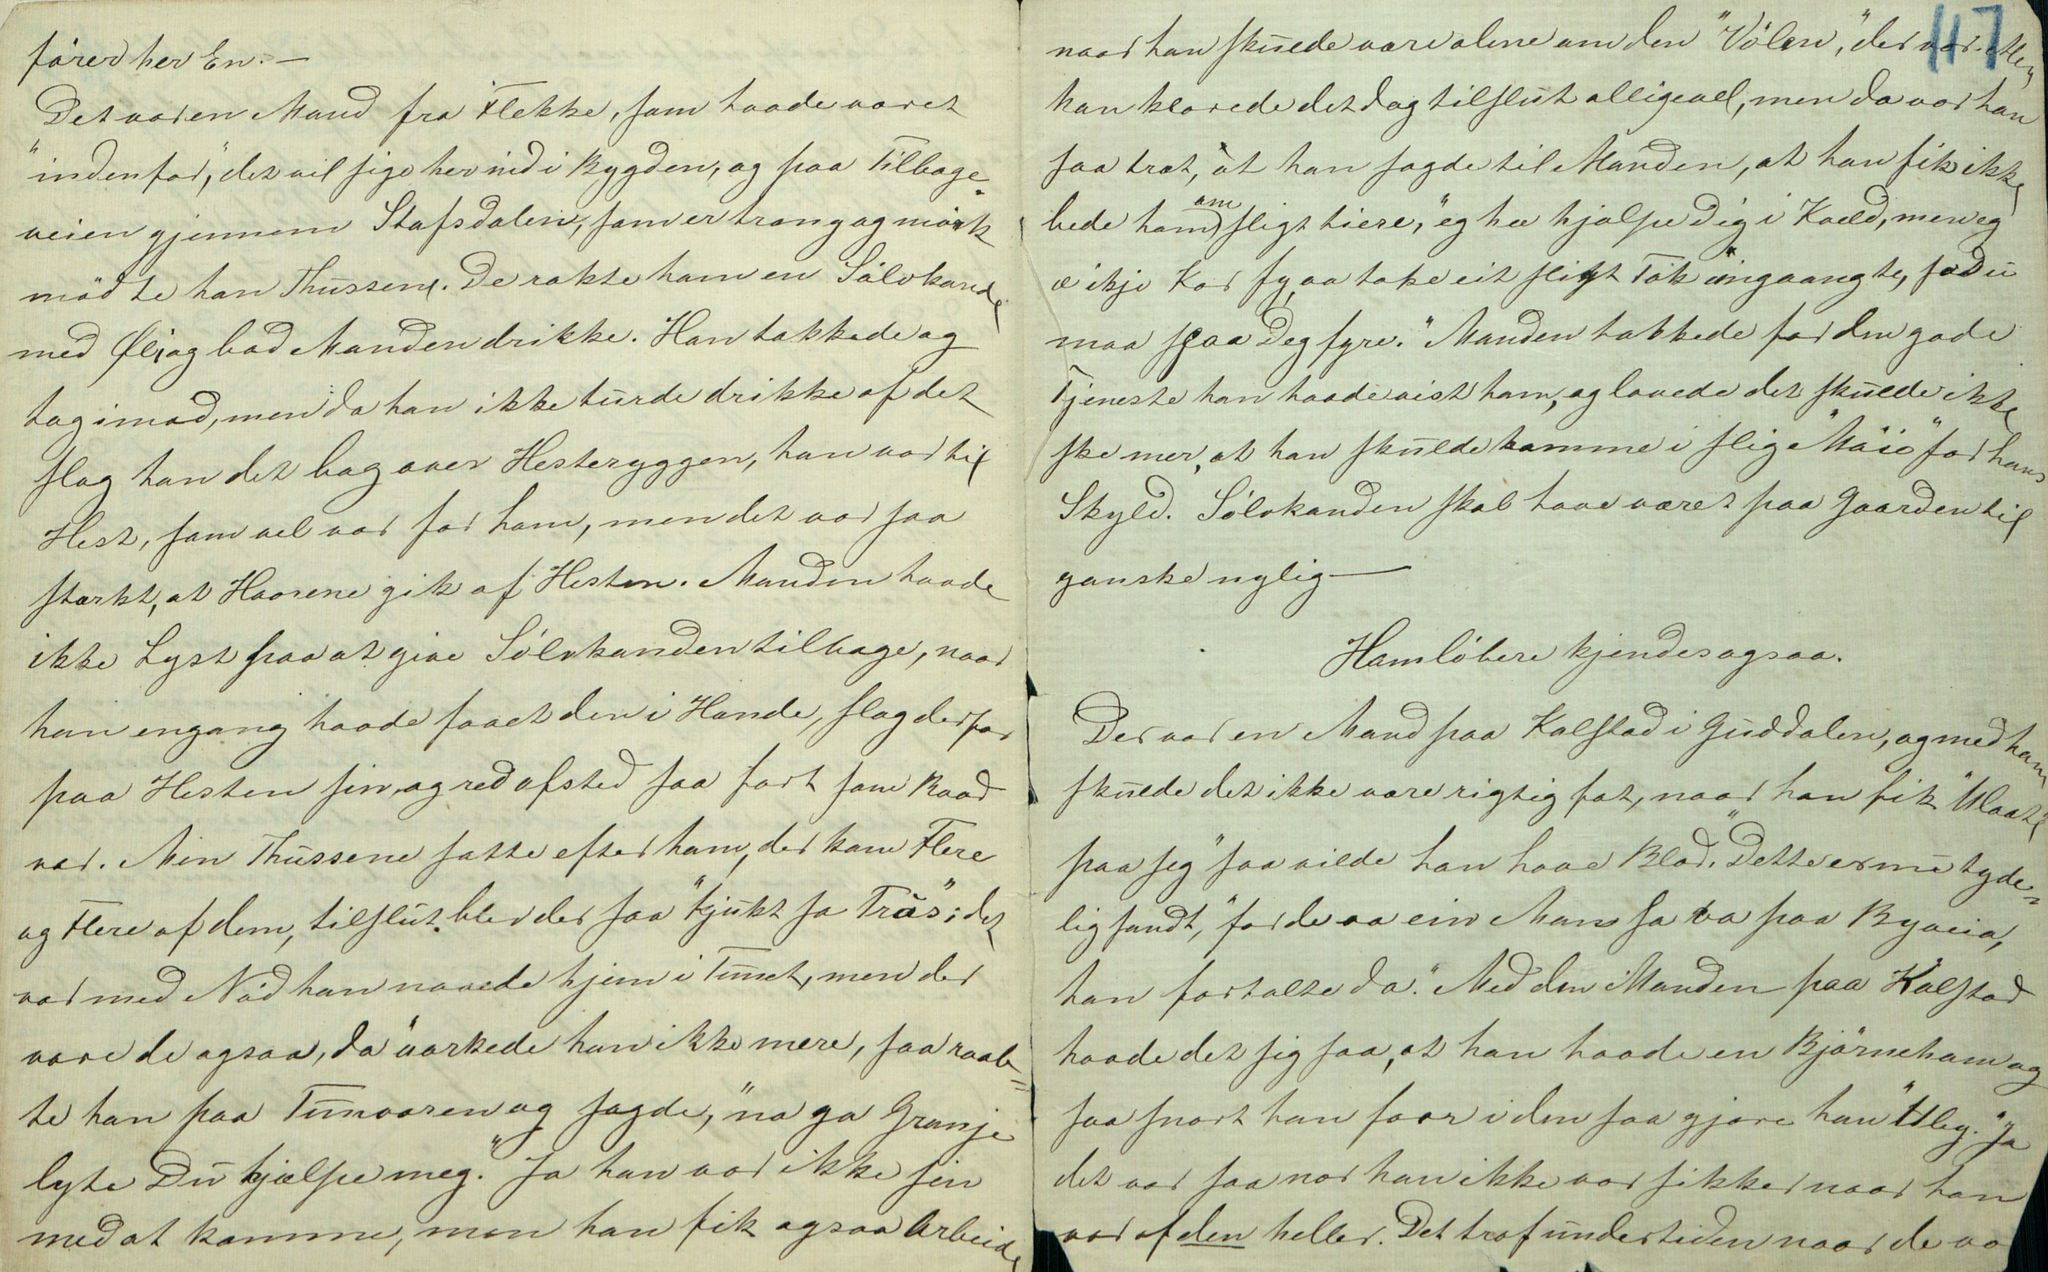 fører her En. —
Det var en Mand fra Flekke, som havde været
"indenfor," det vil sige her ind i Bygden, og paa Tilbage-
veien gjennem Stafsdalen, som er trang og mørk
mødte han Thussene. De rakte ham en Sølvkande
med Øl, og bad Manden drikke. Han takkede og
tog imod, men da han ikke turde drikke af det
slog han det bag over Hesteryggen, han var til
Hest, som vel var for ham, men det var saa
stærkt, at Haarene gik af Hesten. Manden havde
ikke Lyst paa at give Sølvkanden tilbage, naar
han engang havde faaet den i Hænde, slog derfor
paa Hesten sin, og red afsted saa fort som Raad
var. Men Thussene satte efter ham, der kom Flere
og Flere af dem, tilslut blev der saa "kjukt so Traas"; det
var med Nød han naaede hjem i Tunet, men der
vare de ogsaa, da "aarkede han ikke mere, saa raab-
te han paa Tunvoren og sagde, "no ga Granje
lyte Du hjælpe meg." Ja han var ikke sen
med at komme, men han fik ogsaa Arbeide
117
naar han skulde være alene om den "Vølen," der var
han klarede det dog tilslut alligevel, men da var han
saa træt, at han sagde til Manden, at han fik ikke
bede ham om sligt tiere, "eg he hjælpe Dig i Kveld, men eg
æ ikje Kar fy aa take eit sligt Tak ongaangte, so Du
maa sjaa Deg fyre." Manden takkede for den gode
Tjeneste han havde vist ham, og lovede det skulde ikke
ske mer, at han skulde komme i slig "Møie" for hans
Skyld. Sølvkanden skal have været paa Gaarden til
ganske nylig —
Hamløbere kjendes ogsaa.
Der var en Mand paa Kalstad i Guddalen, og med ham
skulde det ikke være rigtig fat, naar han fik "Ulaat
paa seg" saa vilde han have Blod. "Dette er nu tyde-
lig sandt," "for de va ein Mann so va paa Byveia,
han fortalte da." Med den Manden paa Kalstad
havde det sig saa, at han havde en Bjørneham og
saa snart han foor i den saa gjore han "Uleg." Ja
det var saa nær han ikke var sikker naar han
var af den heller. Det traf undertiden naar de va